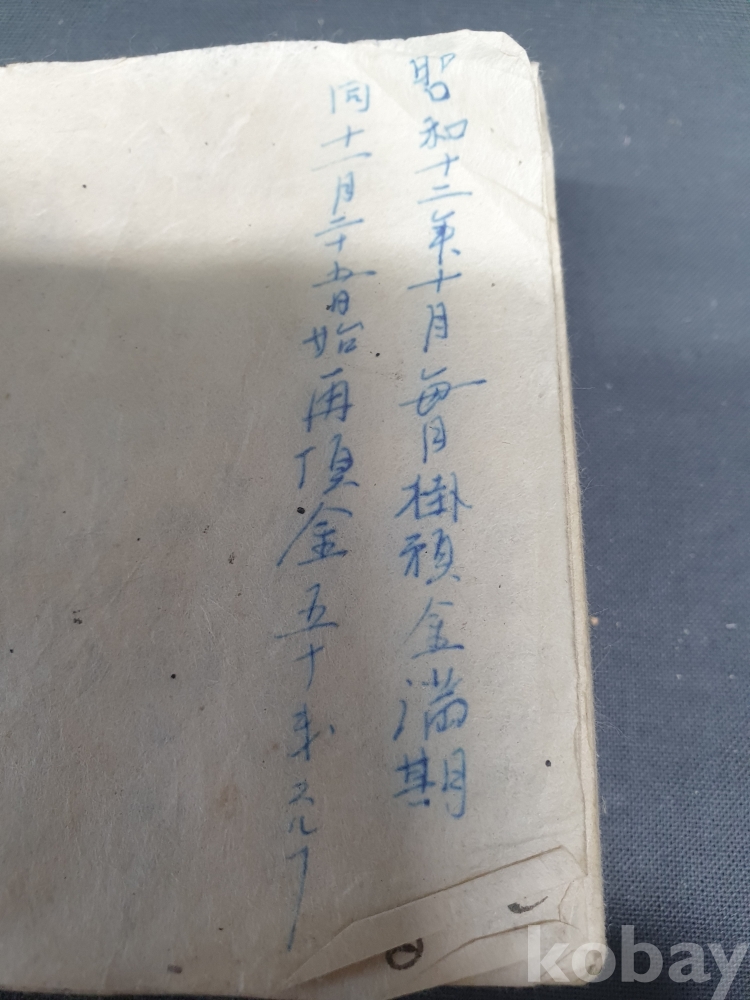 昭和十二年十月毎月掛預金満期
同十一月二十五日始再頂金五十
kobay